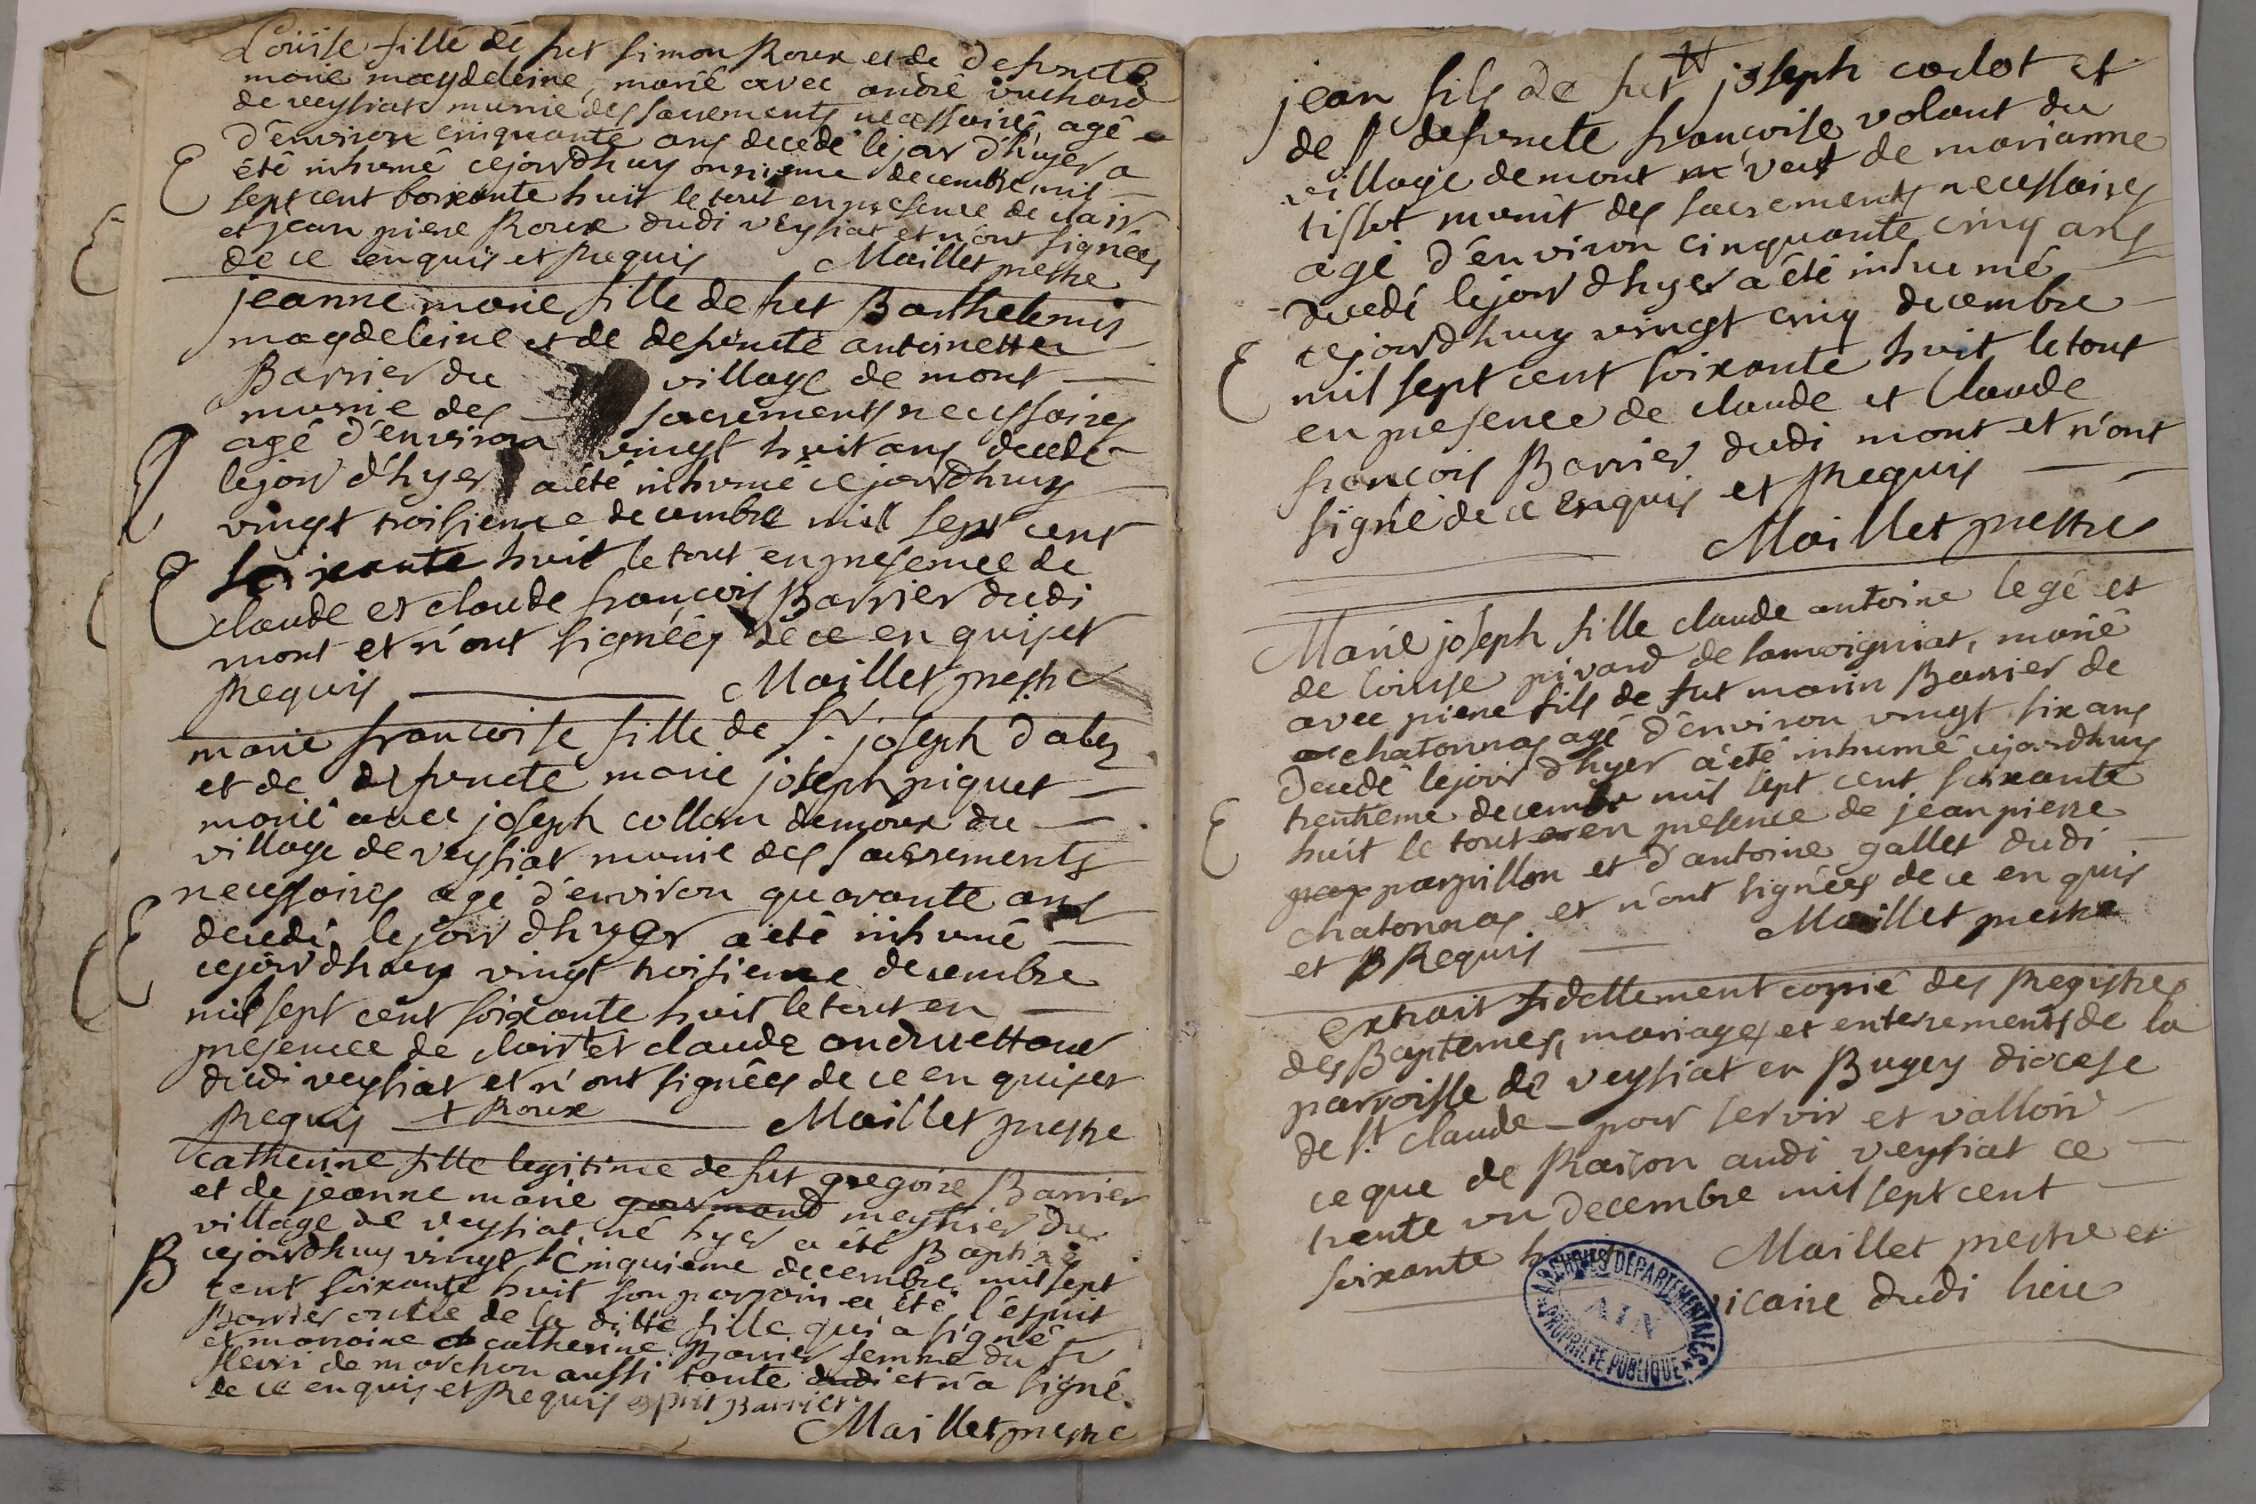 Louise fille de fut simon Roux et de defuncte
marie magdeleine, marié avec andré vuchard
de veysiat munie des sacrements necessaires, agé
d'environ cinquante ans decedé le jour d'hyer a
E
été inhumé cejourdhuy onzieme decembre mil
sept cent soixante huit le tout en presence de clair
et jean piere Roux dudi veysiat et n'ont signées
de ce enquis et Requis Maillet prestre
jeanne marie fille de fut Barthelemis
magdeleine et de defuncte antoinette
Barrier du village de mont
munie des sacrements necessaires
agé d'environ vingt huit ans decedé
le jour d'hyer a été inhumé cejourdhuy
vingt troisieme decembre mil sept cent
E
soixante huit le tout en presence de
claude et claude françois Barrier dudi
mont et n'ont signéés de ce en quis et
Requis Maillet prestre
marie francoise fille de sr. joseph dalex
et de defuncte marie joseph piquet
marié avec joseph collom demoux du
village de veysiat munie des sacrements
necessaires agé d'environ quarante ans
E
decedé, le jour dhyer a été inhumé
cejourdhuy vingt troisieme decembre
mil sept cent soixante huit le tout en
presence de clair et claude andruettoux
dudi veysiat et n'ont signéés de ce en quis et
Requis + Roux Maillet prestre
catherine fille legitime de fut gregoire Barrier
et de jeanne marie gourmand meynier du
village de veysiat, né hyer a été Baptizé
B
cejourdhuy vingt cinquieme decembre mil sept
cent soixante huit son parrain a été l'esprit
Barrier oncle de la ditte fille qui a signé
et marraine catherine Barrier femme du sr
fleuri de marchon aussi tante dudi et n'a signé
de ce enquis et Requis esprit Barrier
Maillet prestre
jean fils de fut joseph carlot et
de defuncte francoise volant du
village de mont veuf de marianne
tissot munit des sacrements necessaires
agé d'environ cinquante cinq ans
decedé le jour dhyer a été inhumé
cejourdhuy vingt cinq decembre
E
mil sept cent soixante huit le tout
en presence de claude et claude
francois Barrier dudi mont et n'ont
signé de ce enquis et Requis
Maillet prestre
Marie joseph fille claude antoine legé et
de louise pivard de samoigniat, marié
avec piere fils de fut marin Barrier de
chatonnas agé d'environ vingt six ans
decedé le jour dhyer a été inhumé cejourdhuy
trentieme decembre mil sept cent soixante
E
huit le tout en presence de jean pierre
parpillon et d'antoine gallet dudi
chatonnas et n'ont signéés de ce en quis
et Requis Maillet prestre
extrait fidellement copié des Registres
des Baptemes, mariages et enterements de la
parroisse de veysiat en Bugey diocese
de st. claude pour servir et valloir
ce que de Raison audi veysiat ce
trente un decembre mil sept cent
soixante Maillet prestre et
vicaire dudi lieu
ARCHIVES DEPARTEMENTALES
AIN
PROPRIETE PUBLIQUE